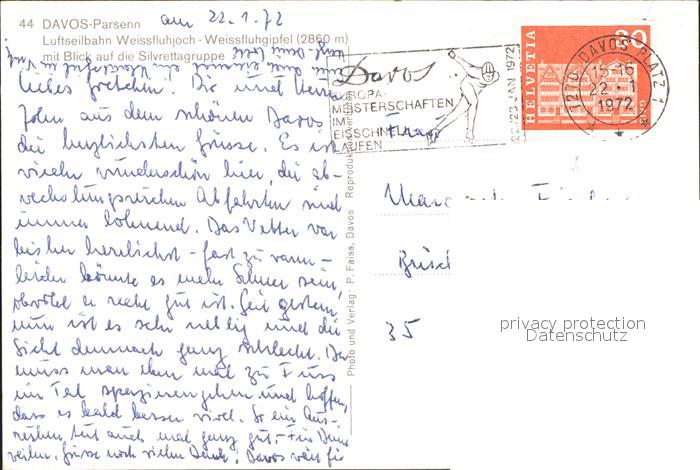 44 DAVOS-Parsenn am 22.1.72
Luftseilbahn Weissfluhjoch - Weissfluhgipfel (2860 m)
mit Blick auf die Silvrettagruppe
Liebes Gretchen! Dir und
aus dem schönen Davos
die herzlichsten Grüsse. Es ist
wieder wunderschön hier, die ab-
wechslungsreichen Abfahrten sind
immer lohnend. Das Wetter war
bisher herrlichst - fast zu warm -
leider könnte es mehr Schnee sein,
obwohl er recht gut ist. Seit gestern
nun ist es sehr neblig und die
Sicht demnach ganz schlecht. Da
muss man eben mal zu Fuss
im Tal spazierengehen und hoffen,
dass es bald besser wird. So ein Aus-
ruhen tut auch mal ganz gut. - Für Deine
noch vielen Dank! Davos
Photo und Verlag: P. Faiss, Davos Reproduk
Davos
EUROPA-
MEISTERSCHAFTEN
IM
EISSCHNELL-
LAUFEN
22/23 JAN 1972
HELVETIA
30
1270 DAVOS PLATZ 1
15-16
22 - 1
1972
Frau
35
privacy protection
Datenschutz